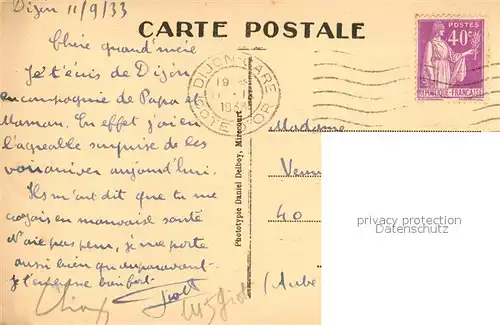 Dijon 11/9/33
CARTE POSTALE
POSTES
40c
Chère grand'mère
Je t'écris de Dijon
en compagnie de Papa et
Maman. En effet j'ai eu
l'agréable surprise de les
voir arriver aujourd'hui.
Ils m'ont dit que tu me
croyais en mauvaise santé
N'aie pas peur, je me porte
aussi bien qu'auparavant
Je t'embrasse bien fort
DIJON-GARE
19
COTE D'OR
Madame
40
(Aube
Phototypie Daniel Delboy, Mirecourt
privacy protection
Datenschutz